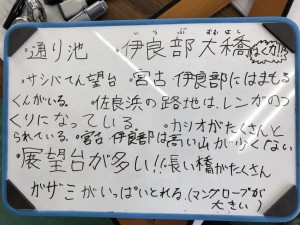 ・通り池 ・伊良部大橋
いらぶ おおはし
・サシバてん望台 ・宮古 伊良部にはまもる
くんがいる。 ・佐良浜の路地は、レンガのつ
くりになっている。 ・カツオがたくさんと
られている。・宮古 伊良部は高い山が少くない
・展望台が多い!! ・長い橋がたくさん
ガザミがいっぱいとれる。(マングローブが
大きい)